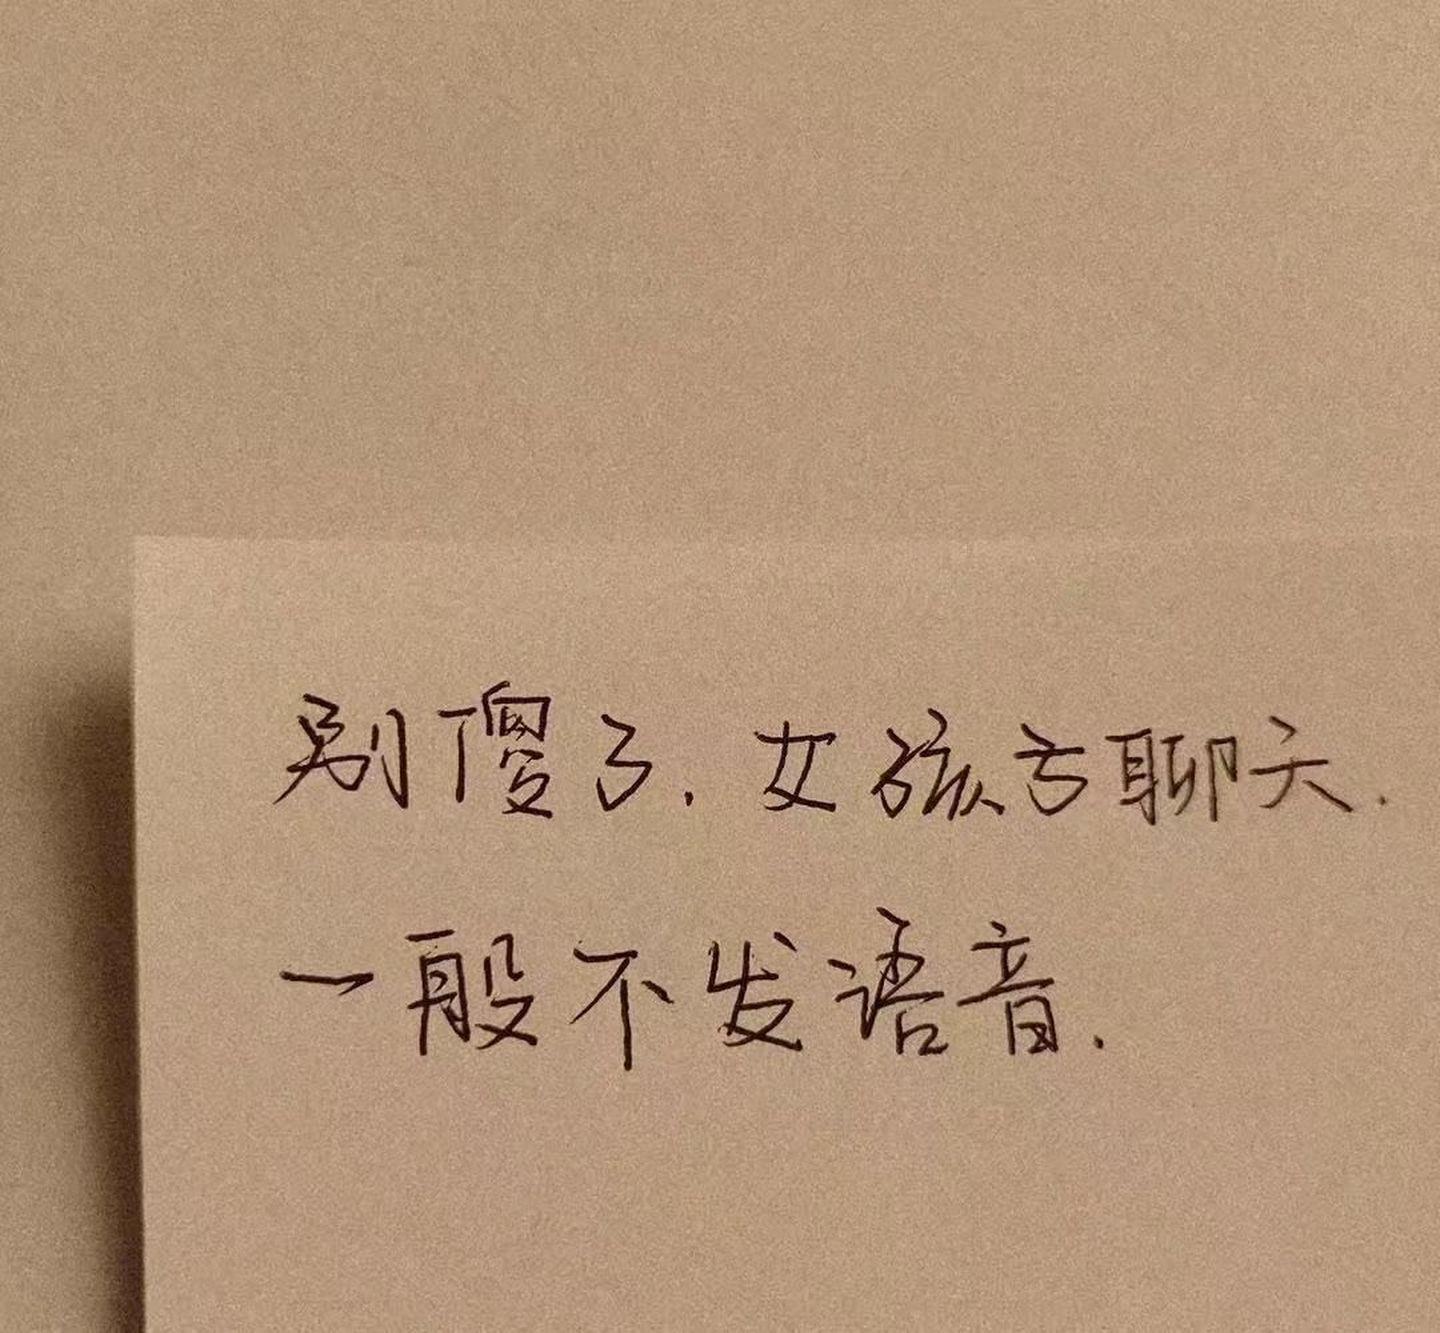 别傻了.女孩子聊天.
一般不发语音.